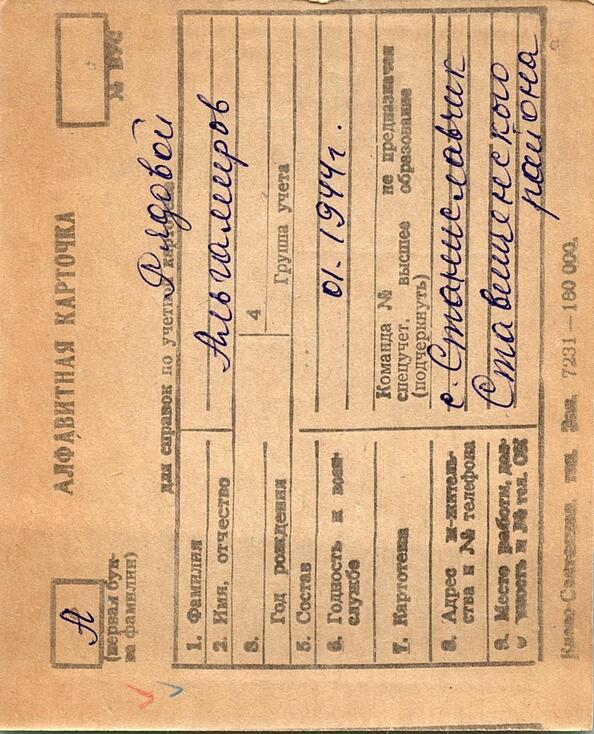 А
(первая бук-
ва фамилии)
№ ВУС
АЛФАВИТНАЯ КАРТОЧКА
для справок по учетной
Рядовой
1. Фамилия
Альгамиров
2. Имя, отчество
3. Год рождения
4
Группа учета
5. Состав
6. Годность к воен-
службе
01-1944г.
7. Картотека
Команда № не предназначен
спецучет, высшее образование
(подчеркнуть)
8. Адрес ж-житель-
ства и № телефона
с. Станиславчик
9. Место работы, дол-
и № тел. ОК
Ставищенского
района
7231—180 000.